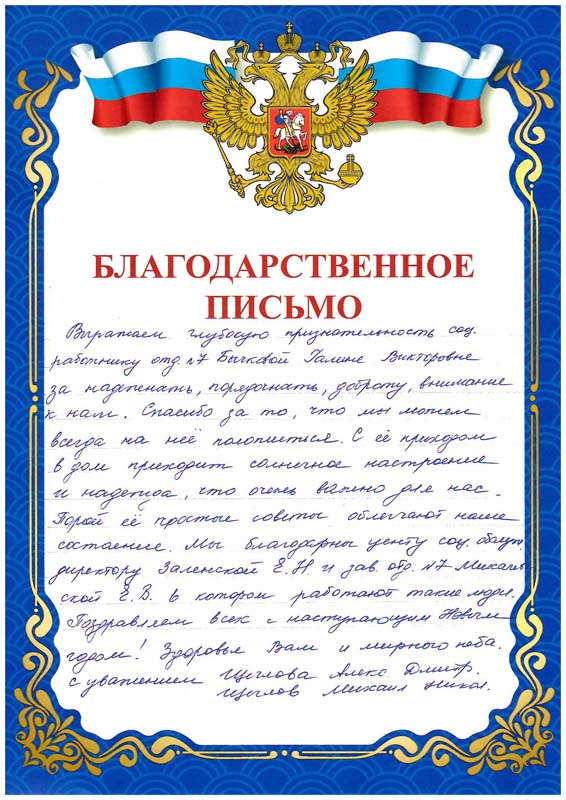 БЛАГОДАРСТВЕННОЕ
ПИСЬМО
Выражаем глубокую признательность соц.
работнику отд. №7 Бычковой Галине Викторовне
за надежность, порядочность, доброту, внимание
к нам. Спасибо за то, что мы можем
всегда на неё положиться. С её приходом
в дом приходит солнечное настроение
и надежда, что очень важно для нас.
Порой её простые советы облегчают наше
состояние. Мы благодарны центу соц. обслуж.
директору Заленской Е.Н. и зав. отд. №7
ской Е.В. в котором работают такие люди.
Поздравляем всех с наступающим Новым
годом! Здоровья Вам и мирного неба.
с уважением Щеглова Алекс. Дмитр.
Щеглов Михаил Никол.